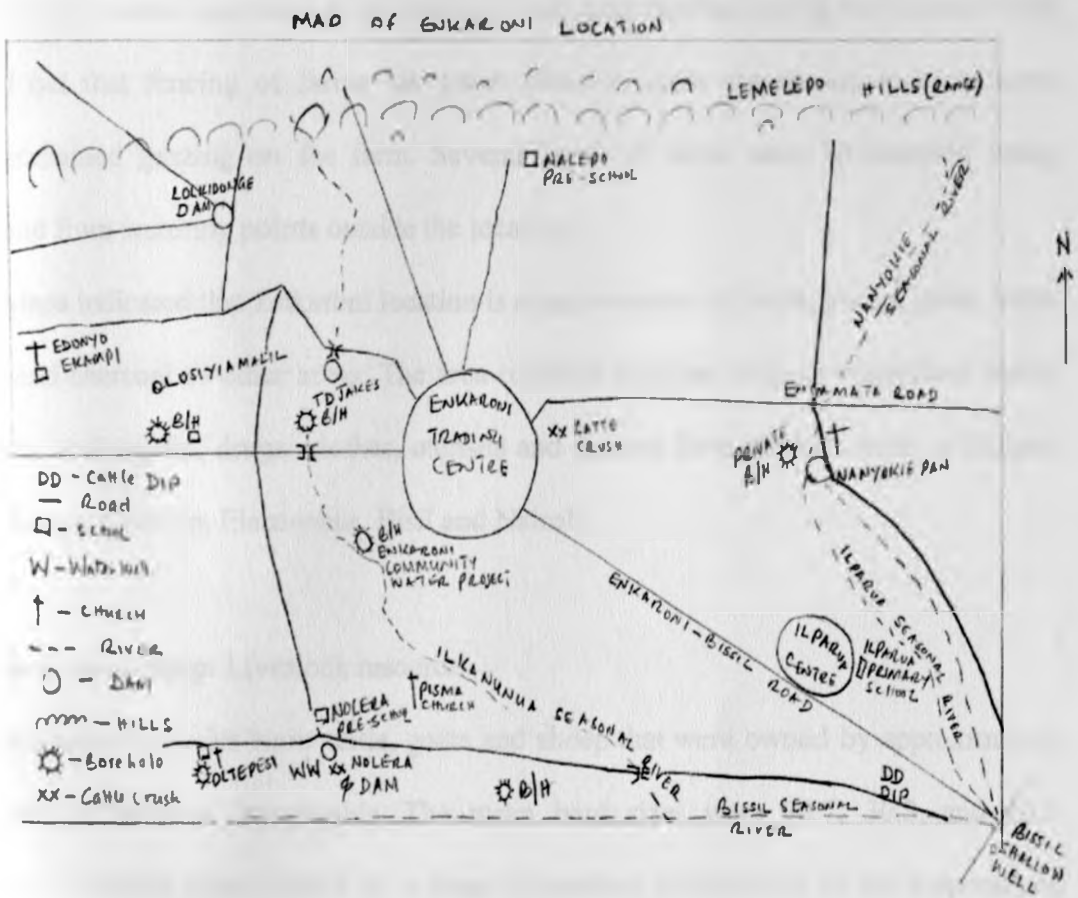 MAP OF ENKARONI LOCATION
LEMELEPO HILLS (RANGE)
NALEPO
PRE-SCHOOL
LOLKIDONGE
DAM
NANYOKIE
SEASONAL
RIVER
N
EDONYO
OLOSIYIAMALIL
B/H
TD JAKES
B/H
ENKARONI
TRADING
CENTRE
XX
CRUSH
ROAD
PRIVATE
B/H
NANYOKIE PAN
DD - Cattle DIP
— Road
- SCHOOL
W - Water Well
- CHURCH
--- - RIVER
- DAM
- HILLS
- Borehole
XX - Cattle crush
B/H
ENKARONI
COMMUNITY
WATER PROJECT
ENKARONI-BISSIL
ROAD
ILPARUA
SEASONAL
RIVER
ILPARUA
CENTRE
ILPARUA
PRIMARY
SCHOOL
SEASONAL
RIVER
NOLERA
PRE-SCHOOL
PISMA
CHURCH
OLTEPESI
WW XX NOLERA
& DAM
B/H
DD
DIP
BISSIL SEASONAL
RIVER
BISSIL
SHALLOW
WELL